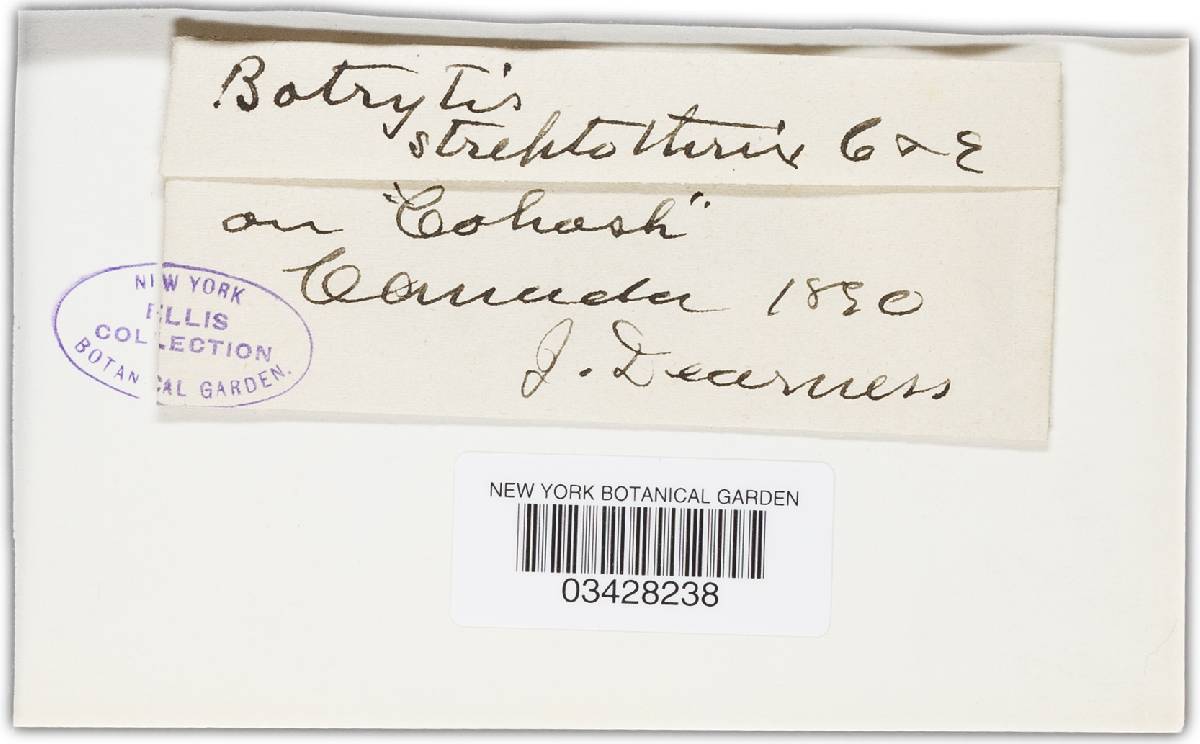 Botrytis
streptothrix C & E
on "Cohosh"
Canada 1890
J. Dearness
NEW YORK
ELLIS
COLLECTION
BOTANICAL GARDEN.
NEW YORK BOTANICAL GARDEN
03428238